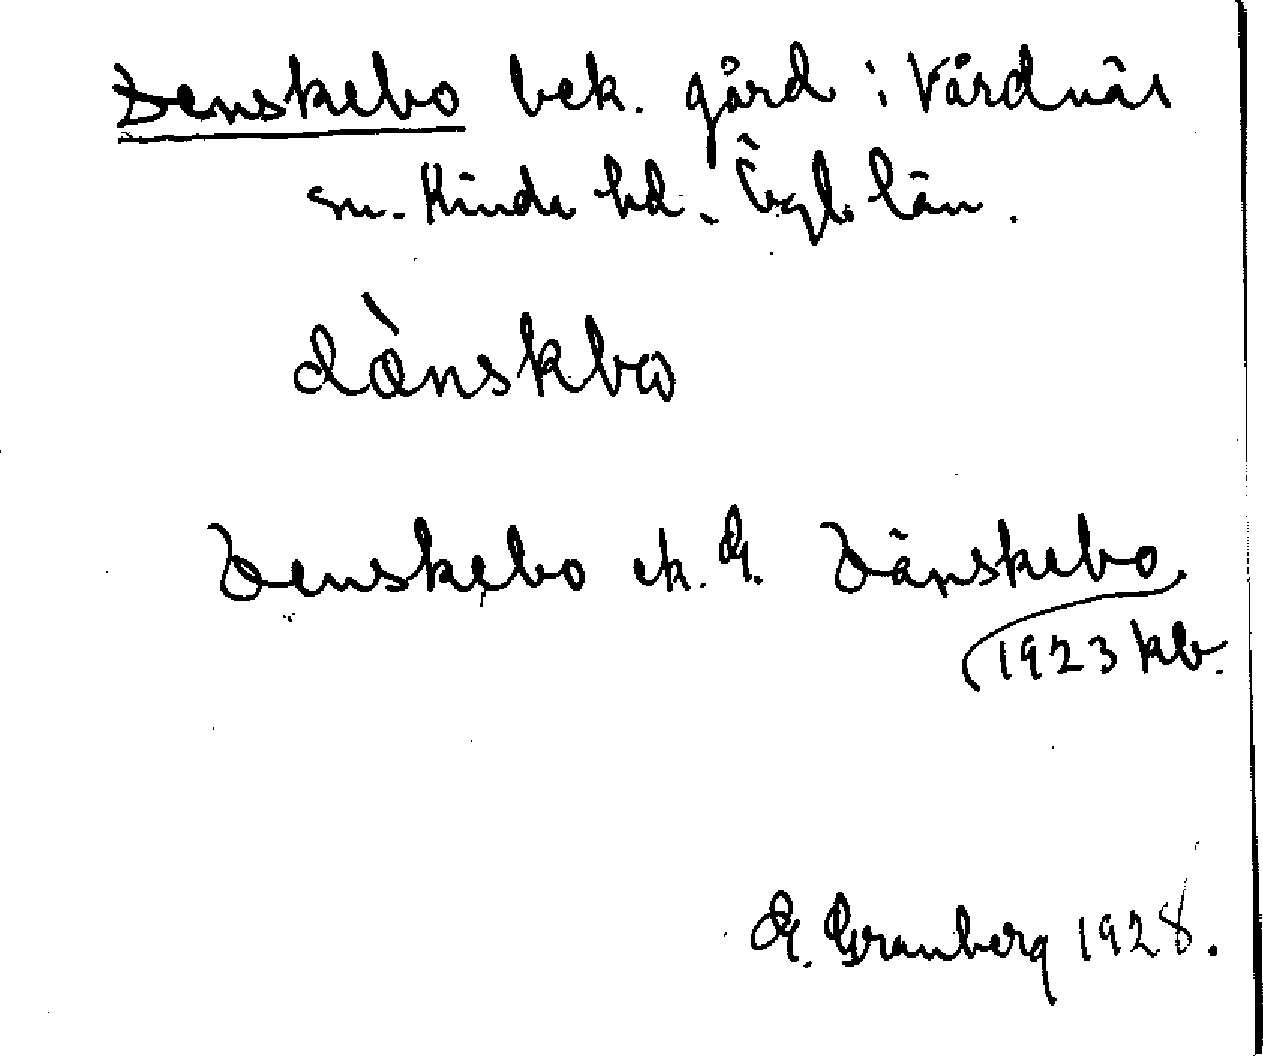 Denskebo bek. gård i Vårdnäs
sn. Kinda hd. Ögl. län.
dànskbω
Denskebo ek. G. Dänskebo
1923 kb.
G. Granberg 1928.